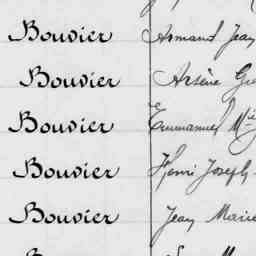 Bouvier Armand Jean
Bouvier Arsène
Bouvier Emmanuel
Bouvier Henri Joseph
Bouvier Jean Marie